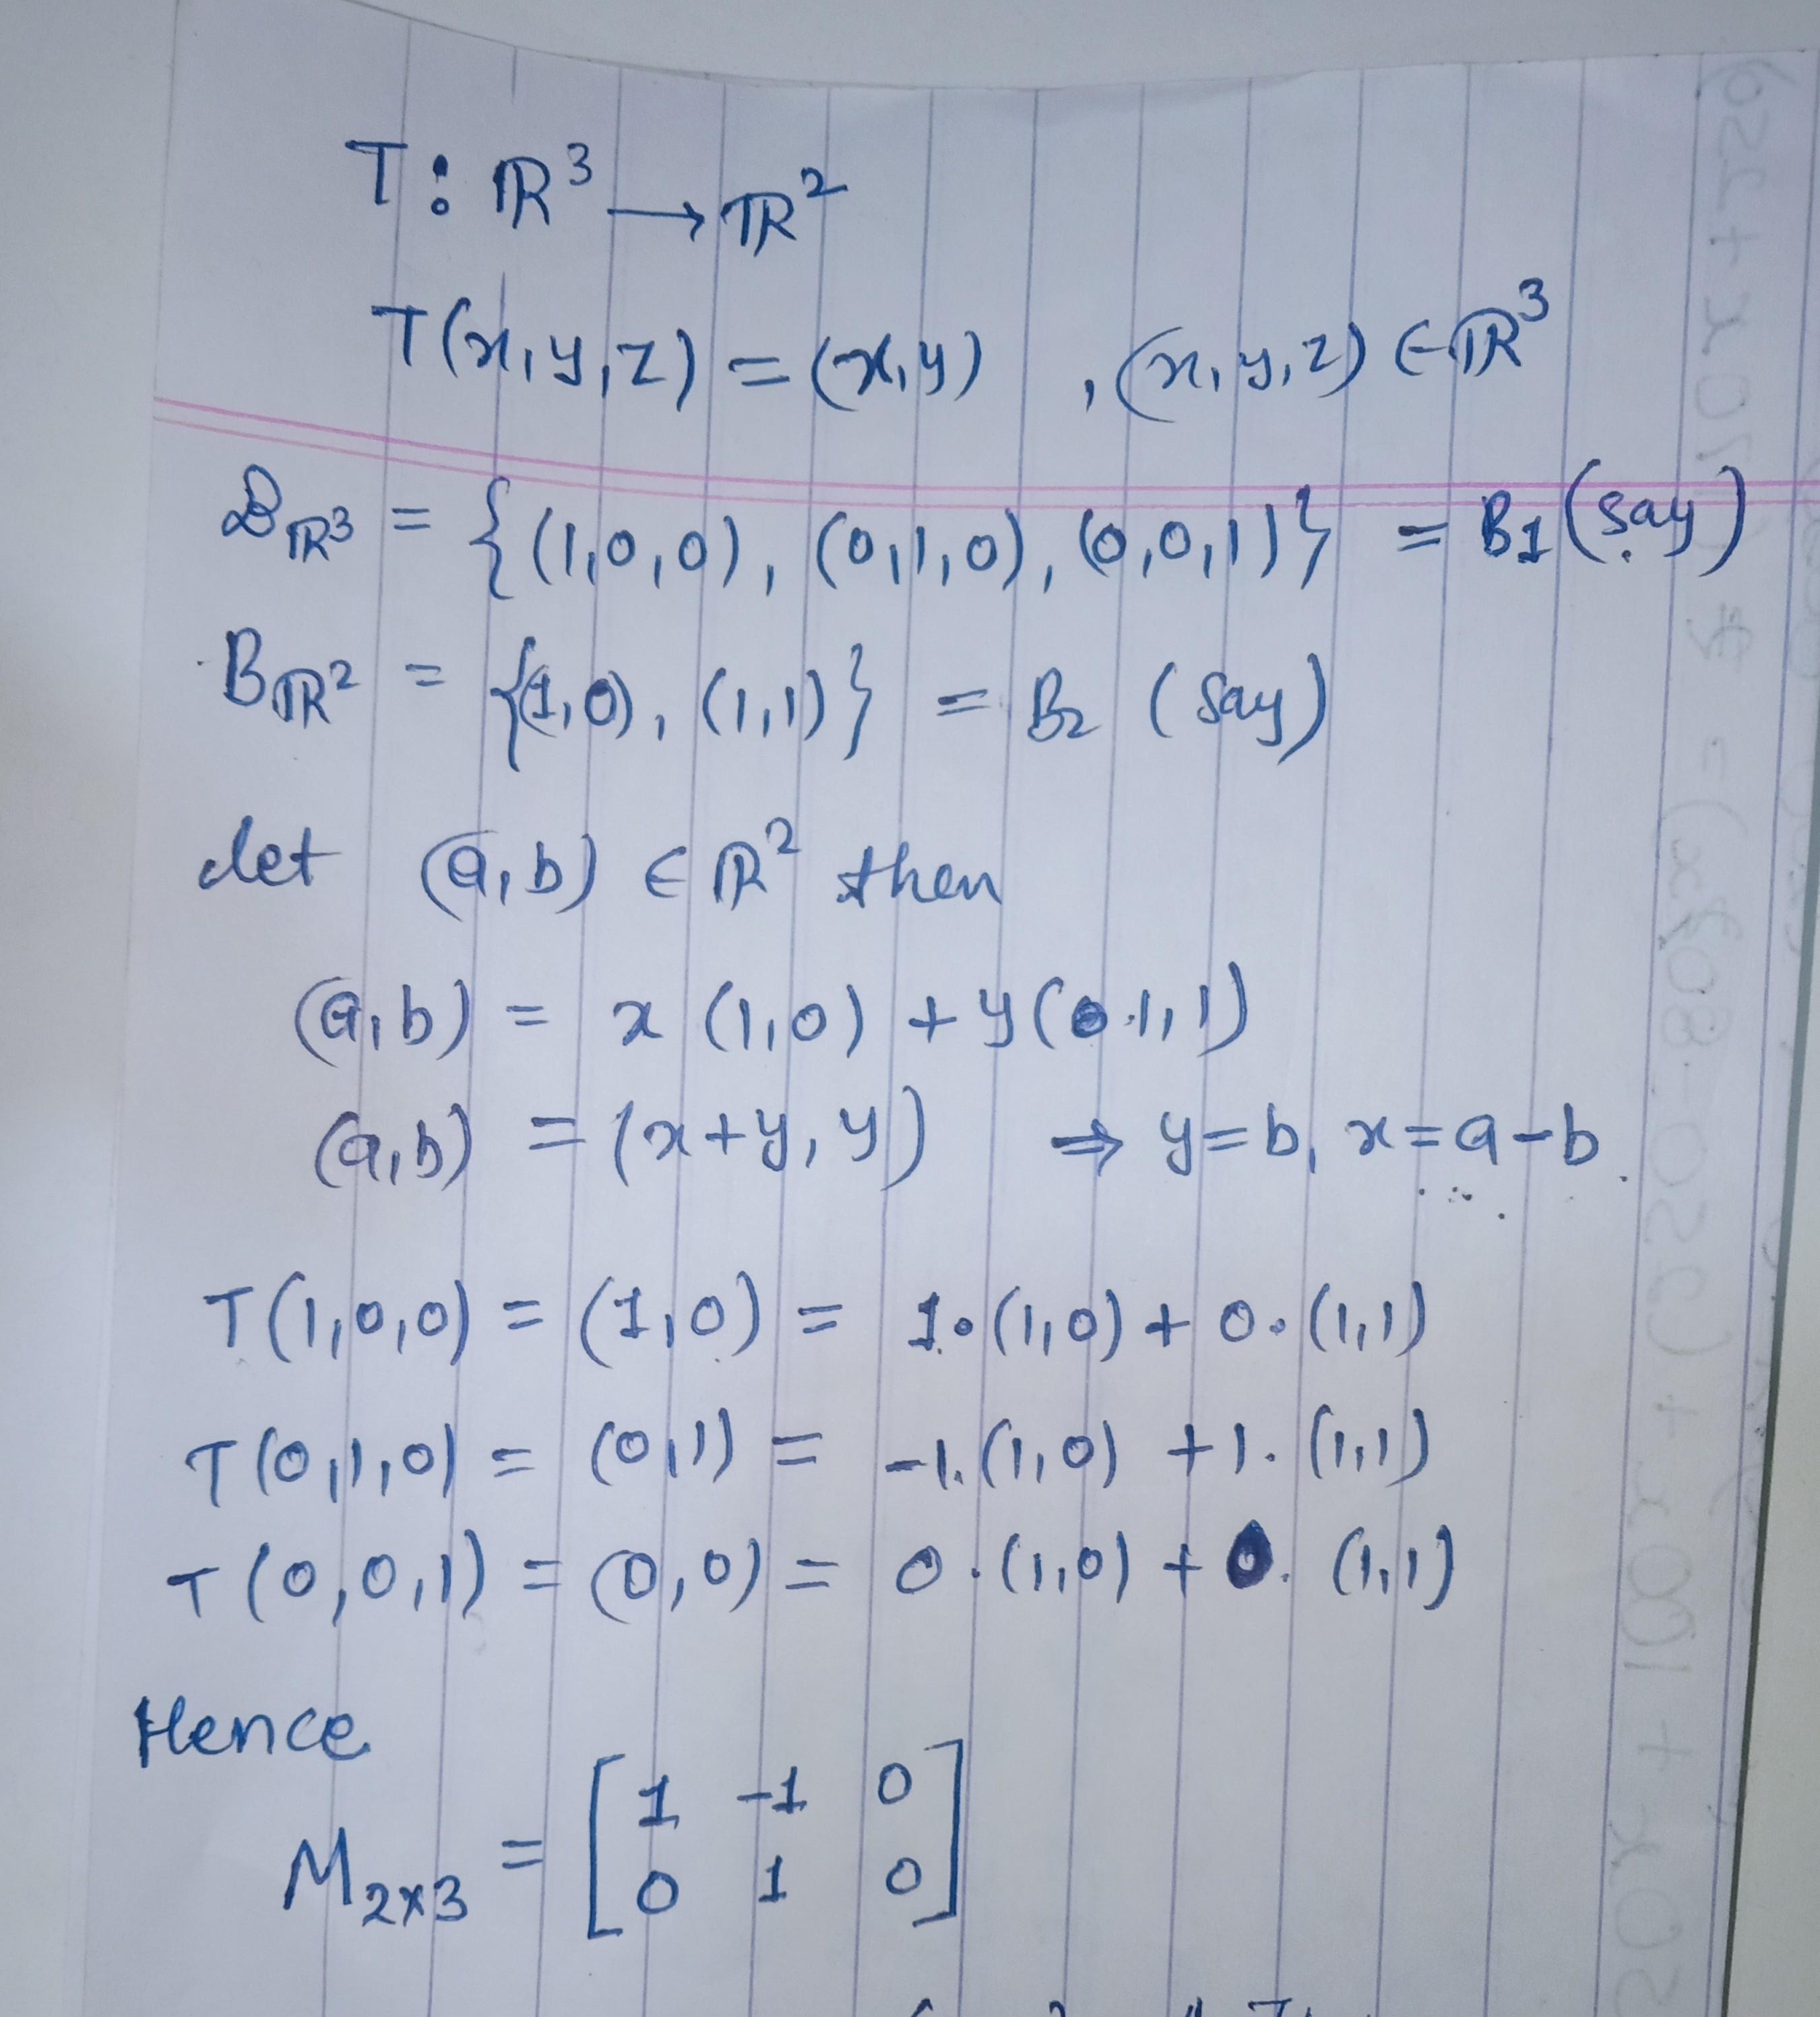 T : ℝ³ → ℝ²
T(x,y,z) = (x,y) , (x,y,z) ∈ ℝ³
B_ℝ³ = {(1,0,0), (0,1,0), (0,0,1)} = B1 (say)
B_ℝ² = {(1,0), (1,1)} = B2 (say)
let (a,b) ∈ ℝ² then
(a,b) = x (1,0) + y (1,1)
(a,b) = (x+y, y) ⇒ y=b, x=a-b.
T(1,0,0) = (1,0) = 1·(1,0) + 0·(1,1)
T(0,1,0) = (0,1) = -1·(1,0) + 1·(1,1)
T(0,0,1) = (0,0) = 0·(1,0) + 0·(1,1)
Hence
M_2×3 = [1 -1 0
0 1 0]